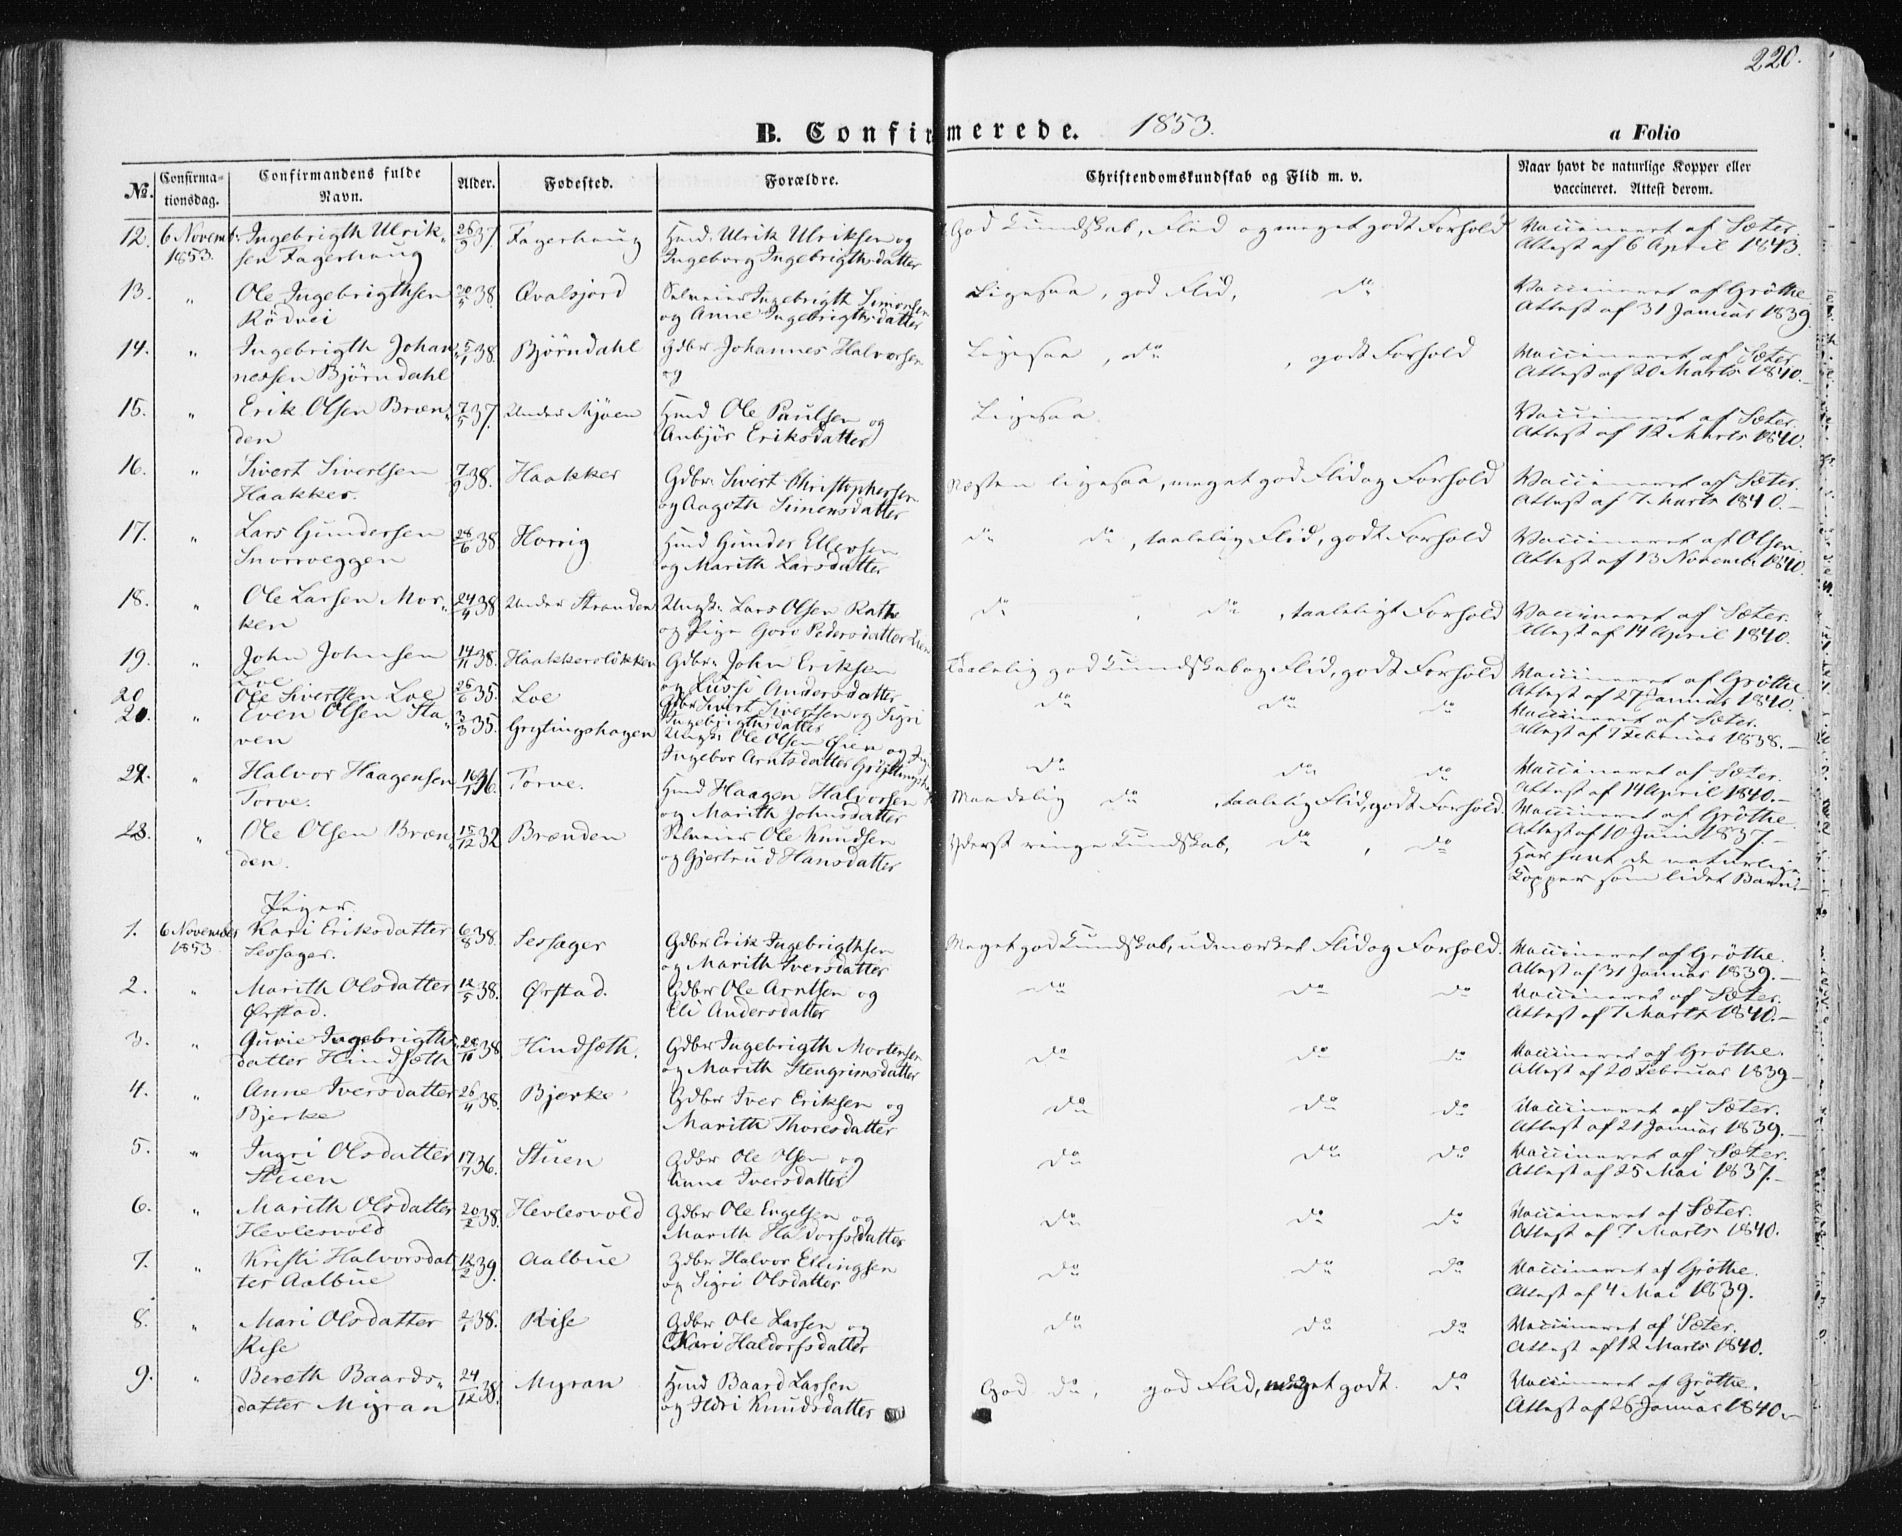 220.
B. Confirmerede. 1853.
a Folio
No.
Confirmationsdag.
Confirmandens fulde Navn.
Alder.
Fødested.
Forældre.
Christendomskundskab og Flid m. v.
Naar havt de naturlige Kopper eller vaccineret. Attest derom.
12. 6 Novemb: Ingebrigth Ulrik- 26/9 37. Fagerhaug Huusd. Ulrik Ulriksen og God Kundskab, Flid og meget godt Forhold Vaccineret af Sæter.
1853. sen Fagerhaug Ingeborg Ingebrigthsdatter Attest af 6 April 1843.
13. " Ole Ingebrigthsen 20/5 38. Qvalsjord Selveier Ingebrigth Simonsen Ligesaa, god Flid, do Vaccineret af Gröthe.
Rödvei og Anne Ingebrigthsdatter Attest af 31 Januar 1839.
14. " Ingebrigth Johan- 5/1 38. Bjørndahl Gdbr Johannes Halvorsen Ligesaa, do, godt Forhold Vaccineret af Sæter.
nessen Björndahl og Attest af 20 Marts 1840.
15. " Erik Olsen Bræn- 7/5 37. Under Mjøen Huusd Ole Paulsen og Ligesaa. Vaccineret af Sæter.
den Anbjör Eriksdatter Attest af 12 Marts 1840.
16. " Sivert Sivertsen 7/9 38. Haakker Gdbr: Sivert Christophersen Næsten ligesaa, meget god Flid og Forhold Vaccineret af Sæter.
Haakker. og Aagoth Simensdatter Attest af 7 Marts 1840.
17. " Lars Gundersen 28/6 38. Horrig Huusd Gunder Ellevsen do do, taalelig Flid, godt Forhold Vaccineret af Olsen.
Snorroeggen og Marith Larsdatter Attest af 13 Novembr 1840.
18. " Ole Larsen Mor- 24/4 38. Under Stranden Ungk: Lars Olsen Rathe do, do, taaleligt Forhold Vaccineret af Sæter.
ken og Pige Goro Pedersdatter Attest af 14 April 1840.
19. " John Johnsen 14/11 38. Haakkersløkken Gdbr: John Eriksen Taalelig god Kundskab og Flid, godt Forhold Vaccineret af Grøthe.
Loe og Lussi Andersdatter Attest af 27 Januar 1840.
20 Ole Sivertsen Loe 26/6 35. Loe Gdbr Sivert Sivertsen og Sigri do do do Vaccineret af Sæter.
Ingebrigtsdatter Attest af 7 Februar 1838.
21. " Even Olsen Sta- 3/3 35. Grytingshagen Ungk: Ole Olsen Øien og Pige do do do Vaccineret af Sæter.
ven Ingebor Arntsdatter Attest af 14 April 1840.
22. " Halvor Haagensen 16/1 36. Torve. Huusd Haagen Halvorsen Maadelig do, taalelig Flid, godt Forhold. Vaccineret af Gröthe.
Torve. og Marith Johnsdatter Attest af 10 Juni 1837.
23. " Ole Olsen Bræn- 15/12 32 Brænden Selveier Ole Knudsen Yderst ringe Kundskab, do, do Har havt de naturlige
den. og Gjertrud Hansdatter Kopper som lidet Barn.
Piger.
1. 6 November Kari Eriksdatter 6/8 38. Sessager Gdbr Erik Ingebrigthsen Meget god Kundskab, udmærket Flid og Forhold. Vaccineret af Gröthe.
1853. Sessager. og Marith Iversdatter Attest af 31 Januar 1839.
2. " Marith Olsdatter 12/5 38. Ørstad. Gdbr Ole Arntsen og do do do Vaccineret af Sæter.
Ørstad. Eli Andersdatter Attest af 7 Marts 1840.
3. " Guvie Ingebrigths- 28/10 38 Hindsæth. Gdbr Ingebrigth Mortensen do do do Vaccineret af Gröthe.
datter Hindsæth og Marith Stengrimsdatter Attest af 20 Februar 1839.
4. " Anne Iversdatter 26/11 38. Bjerke Gdbr Iver Eriksen og do do do Vaccineret af Sæter.
Bjerke Marith Thoresdatter Attest af 21 Januar 1839.
5. " Ingri Olsdatter 17/7 36. Stuen Gdbr Ole Olsen og do do do Vaccineret af Sæter.
Stuen Anne Iversdatter Attest af 25 Mai 1837.
6. " Marith Olsdatter 20/2 38. Hevlesvold Gdbr Ole Engelsen og do do do Vaccineret af Sæter.
Hevlesvold Marith Haldorsdatter Attest af 7 Marts 1840.
7. " Kristi Halvorsdat- 12/2 39. Aalbue Gdbr Halvor Ellingsen do do do Vaccineret af Gröthe.
ter Aalbue og Sigri Olsdatter Attest af 4 Mai 1839.
8. " Mari Olsdatter 2/1 38. Rise Gdbr Ole Larsen og do do do Vaccineret af Sæter.
Rise Kari Haldorsdatter Attest af 12 Marts 1840.
9. " Bereth Baards- 24/12 38. Myran Huusd Baard Larsen God do, god Flid, meget godt do Vaccineret af Gröthe.
datter Myran og Ildri Knudsdatter Attest af 26 Januar 1840.